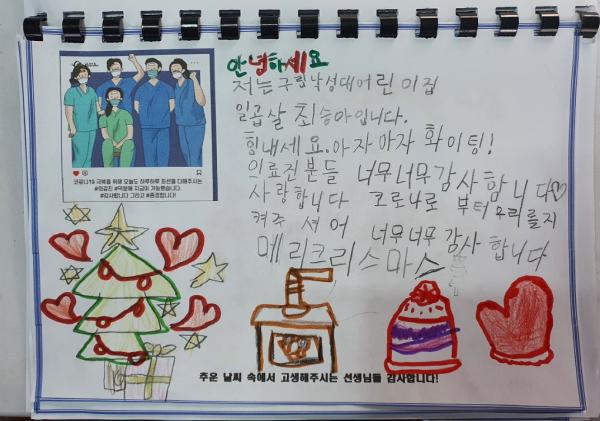 안녕하세요
저는 구립낙성대어린이집
일곱살 최승아입니다.
힘내세요. 아자아자 화이팅!
의료진분들 너무너무감사합니다♡
사랑합니다 코로나로 부터 우리를지
켜주셔어 너무너무 감사합니다
메리크리스마스
코로나19 극복을 위해 오늘도 하루하루 최선을 다해주시는
#의료진 #덕분에 지금이 가능했습니다.
#감사합니다! 그리고 #존경합니다!
추운 날씨 속에서 고생해주시는 선생님들 감사합니다!